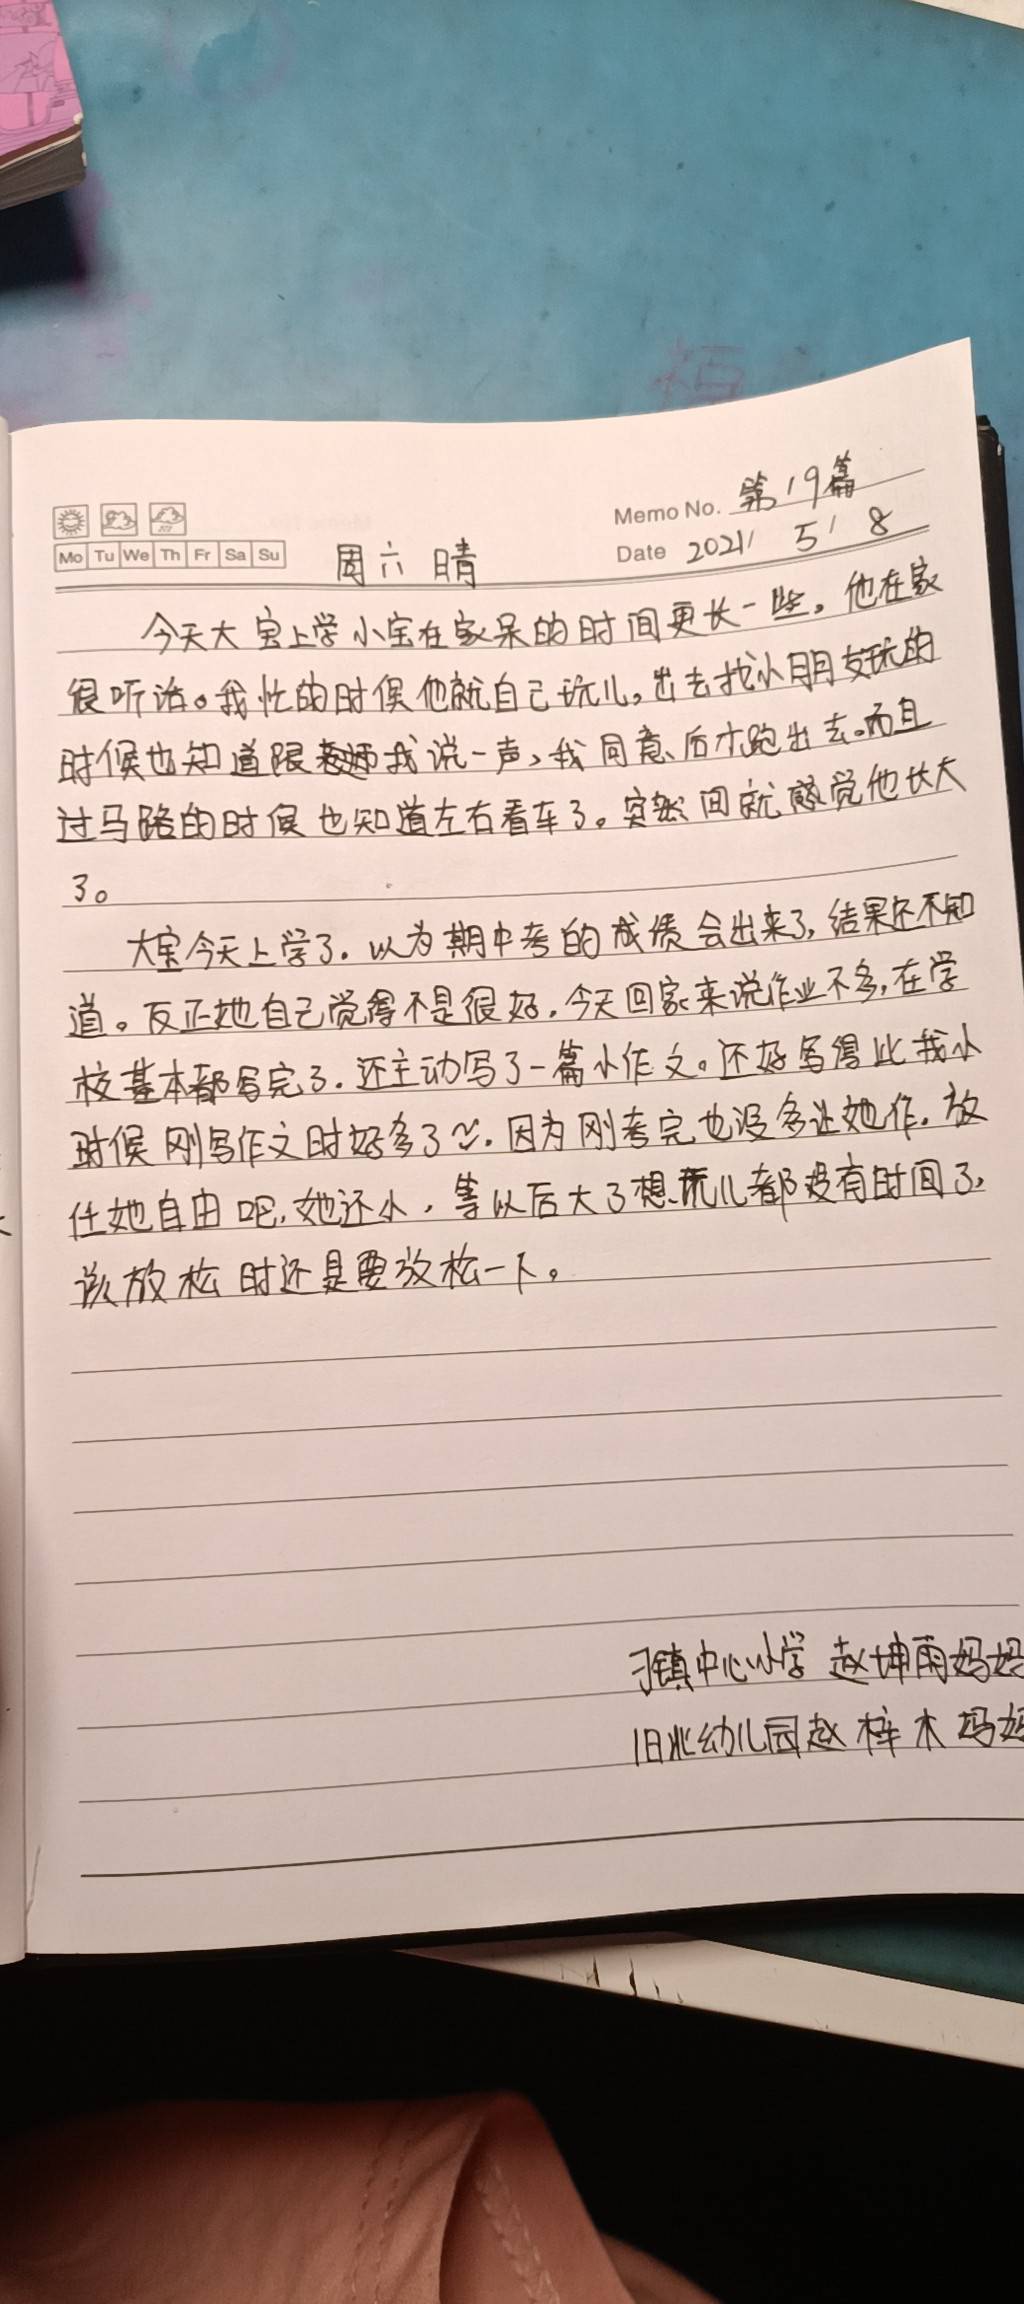 Memo No. 第19篇
Mo Tu We Th Fr Sa Su
周六 晴
Date 2021/ 5/ 8
今天大宝上学小宝在家呆的时间更长一些。他在家
很听话。我忙的时候他就自己玩儿,出去找小朋友玩的
时候也知道跟我说一声,我同意后才跑出去。而且
过马路的时候也知道左右看车了。突然间就感觉他长大
了。
大宝今天上学了.以为期中考的成绩会出来了,结果还不知
道。反正她自己觉得不是很好.今天回家来说作业不多,在学
校基本都写完了.还主动写了一篇小作文。还好写得比我小
时候刚写作文时好多了~.因为刚考完也没多让她作.放
任她自由吧,她还小,等以后大了想玩儿都没有时间了,
该放松时还是要放松一下。
刁镇中心小学 赵坤雨妈妈
旧北幼儿园赵梓木妈妈